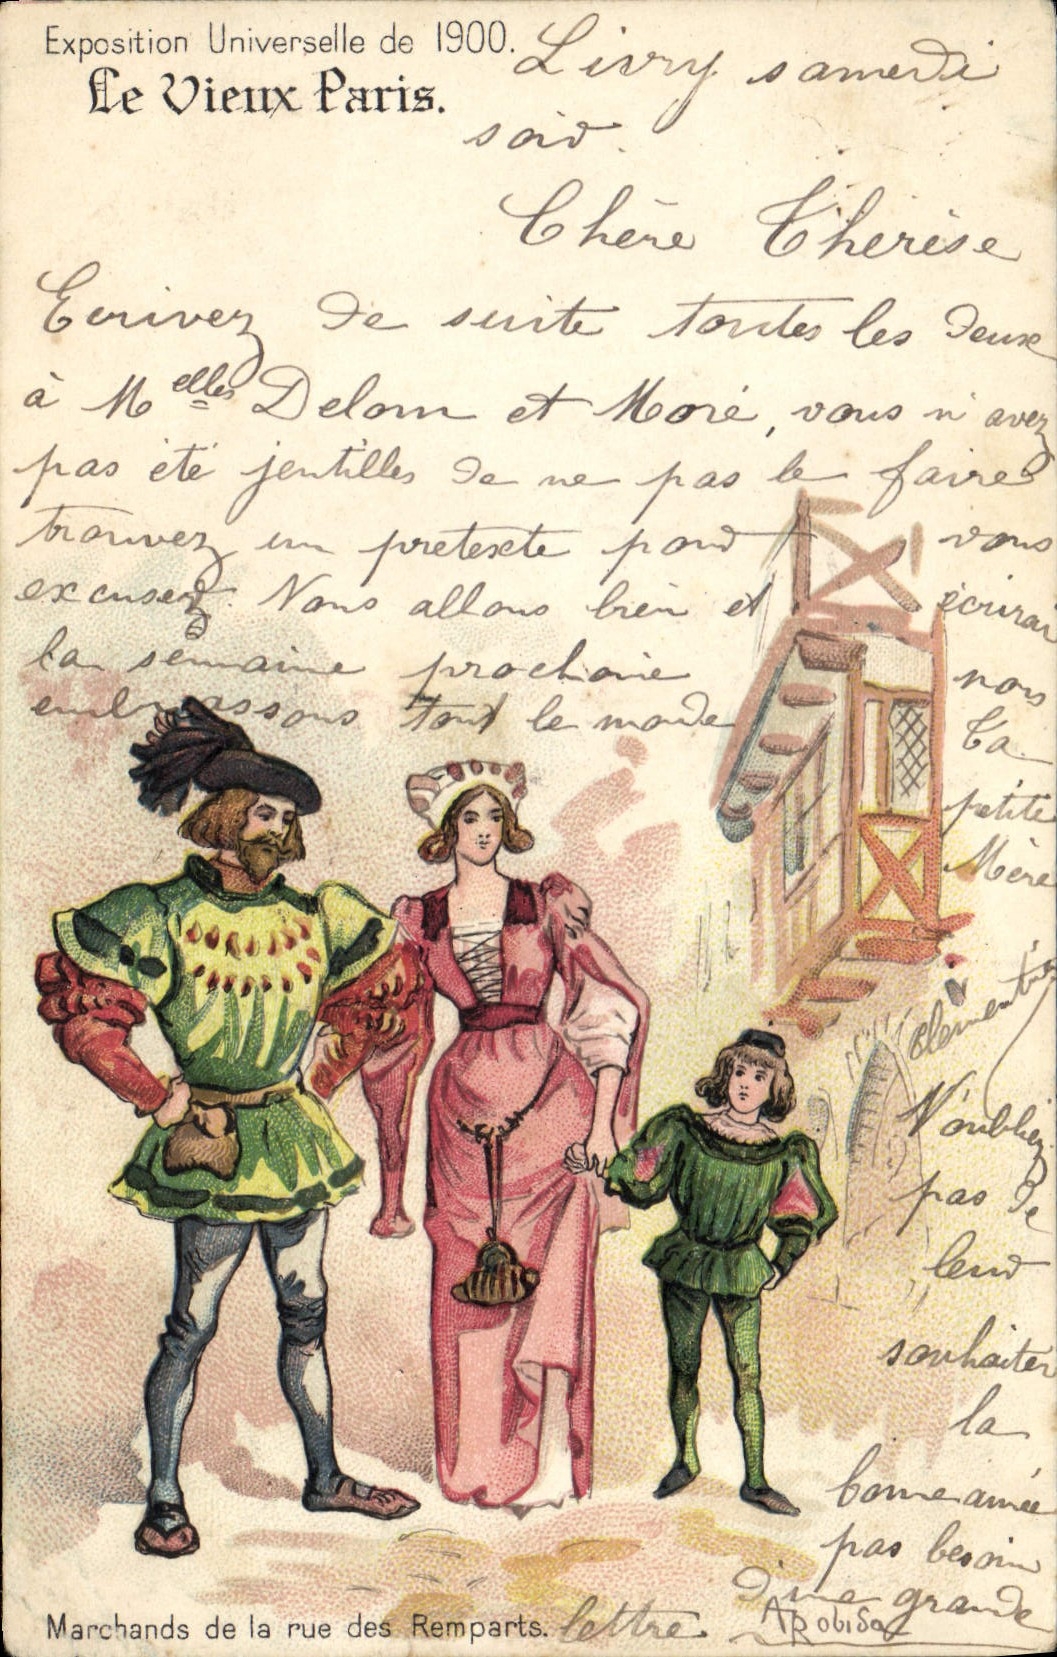 Exposition Universelle de 1900.
Le Vieux Paris.
Livry samedi
soir.
Chère Thérèse
Ecrivez de suite toutes les deux
à Melles Delom et Moré, vous n'avez
pas été jentilles de ne pas le faire
trouvez un pretexte pour vous
excusez. Nous allons bien et écrirai
la semaine prochaine nous
embrassons tout le monde
Ta
petite
Mère
Clementine
N'oubliez
pas de
leur
souhaiter
la
bonne année
pas besoin
d'une grande
lettre
A Robida
Marchands de la rue des Remparts.